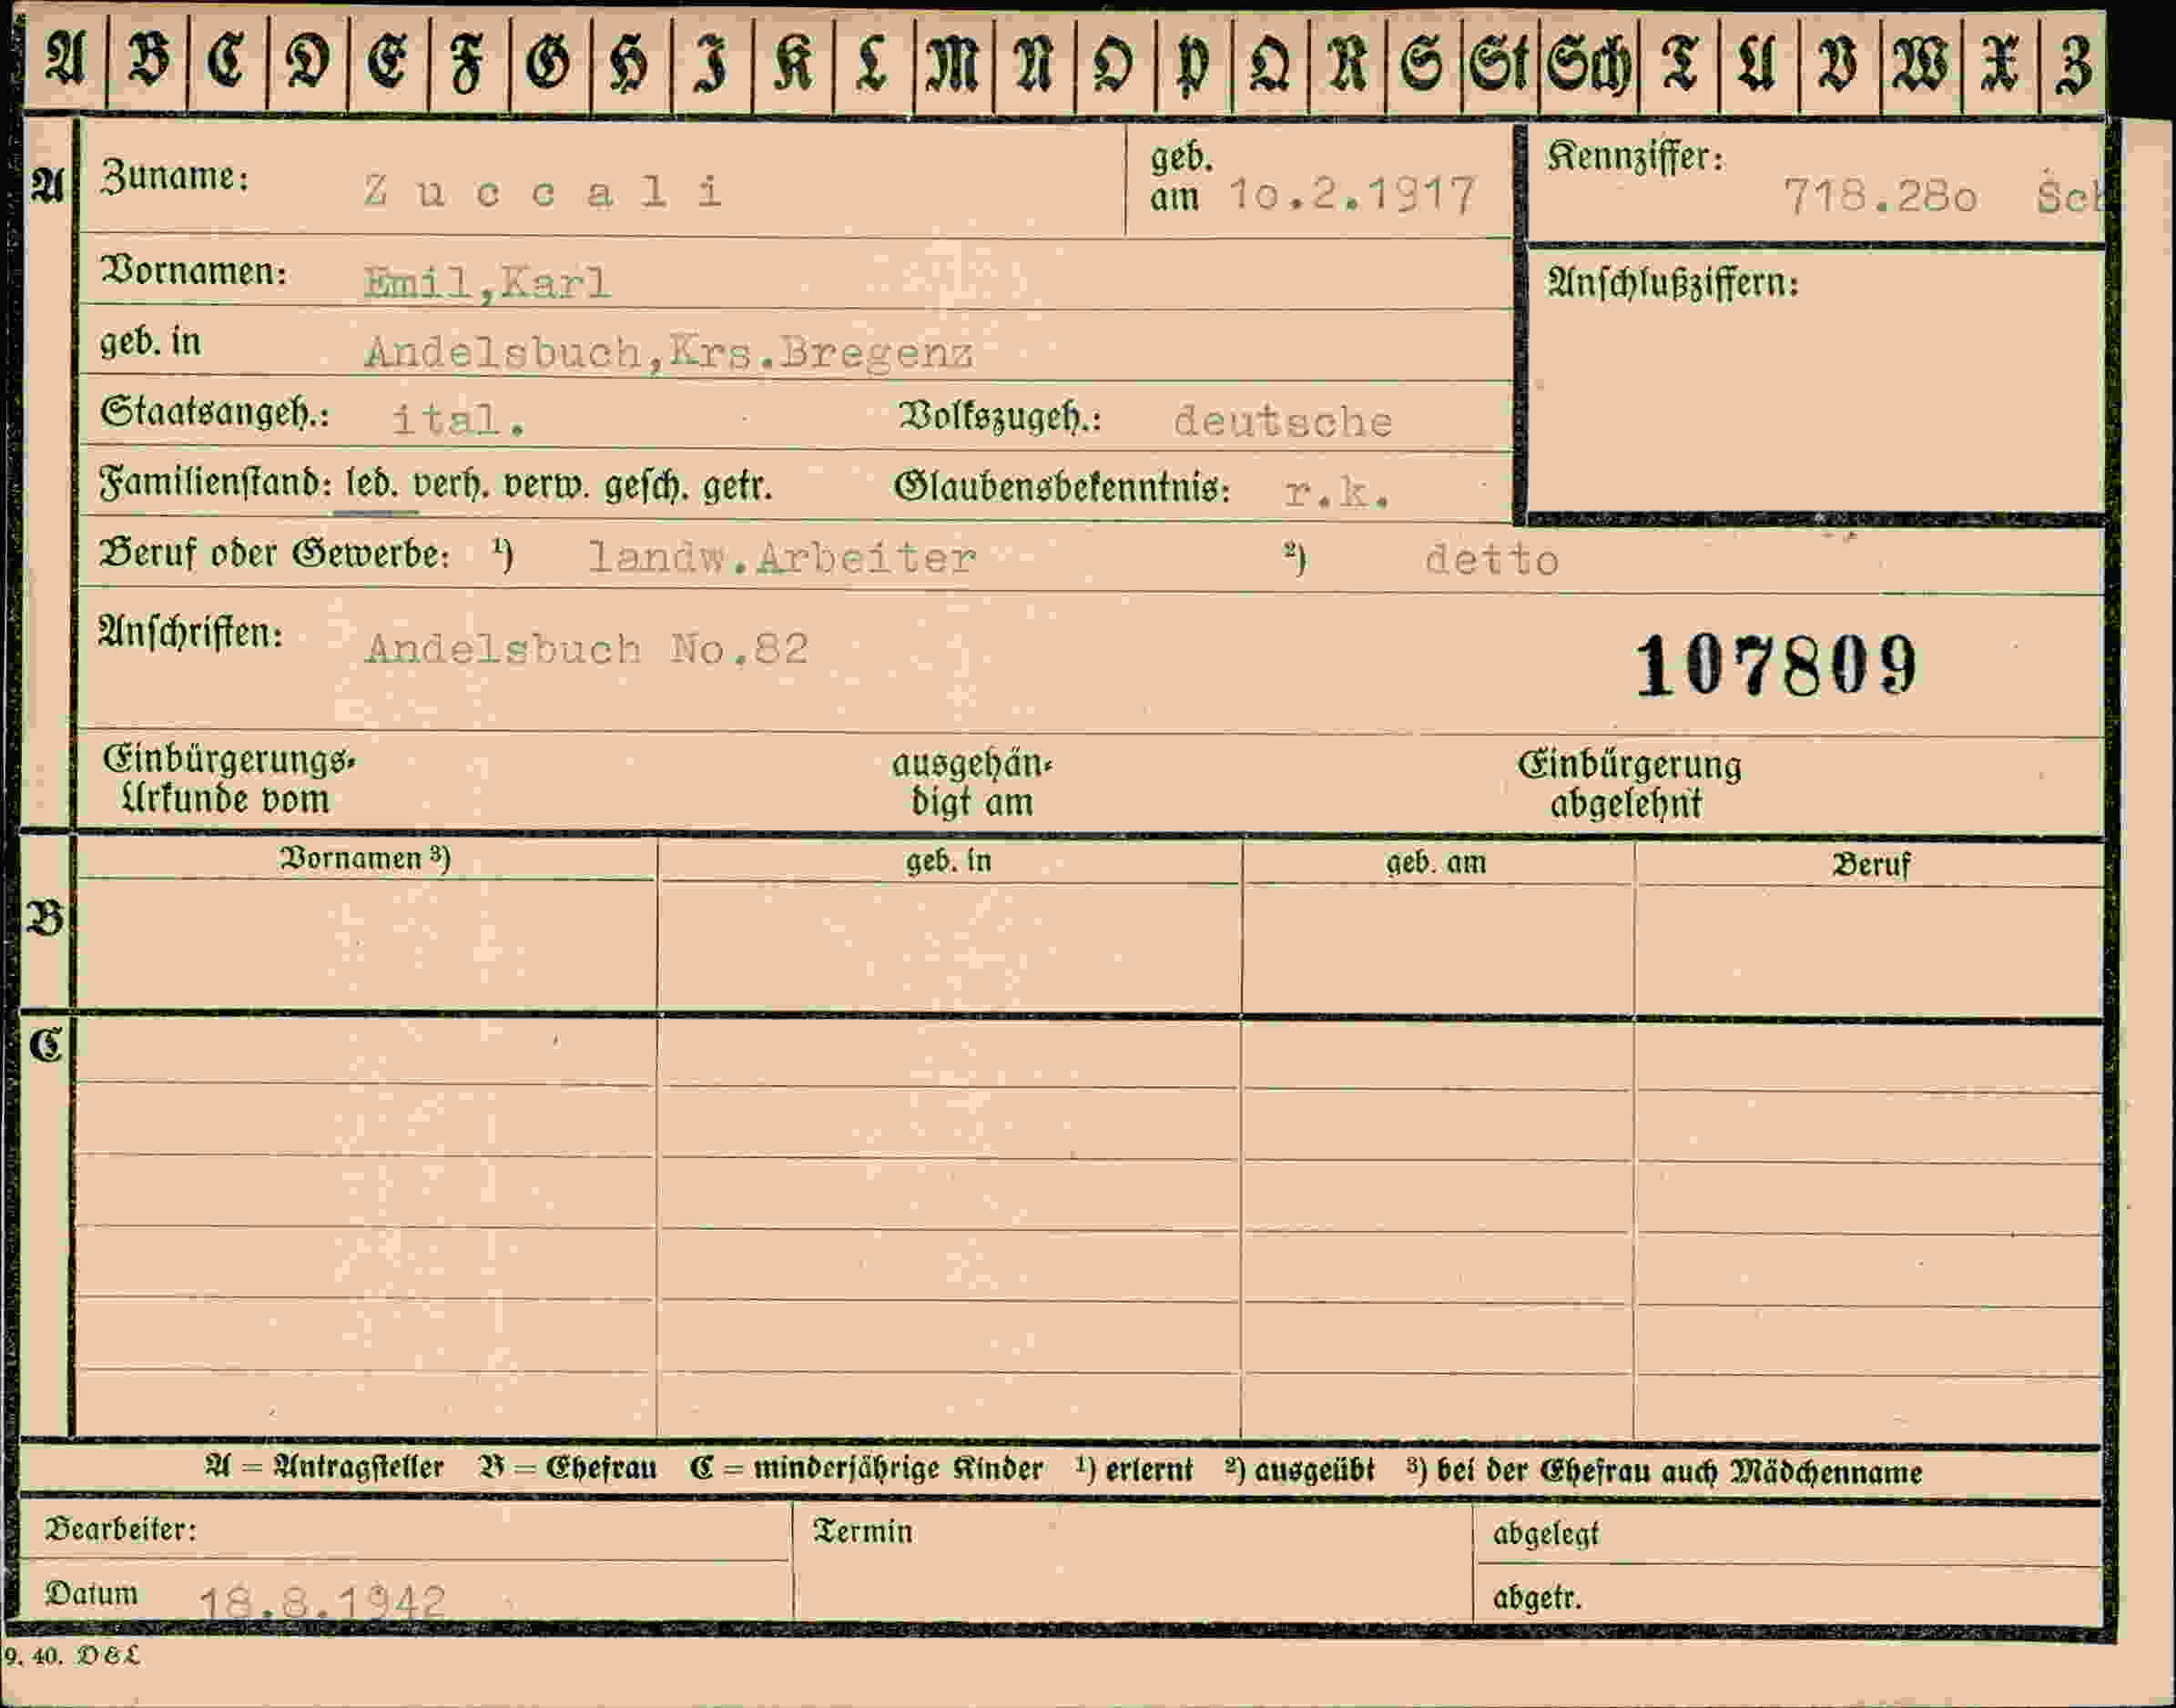 A B C D E F G H I K L M N O P Q R S St Sch T U V W X Z
A Zuname: Zuccali geb. am 10.2.1917 Kennziffer: 718.28o Sch
Vornamen: Emil,Karl Anschlußziffern:
geb. in Andelsbuch,Krs.Bregenz
Staatsangeh.: ital. Volkszugeh.: deutsche
Familienstand: led. verh. verw. gesch. getr. Glaubensbekenntnis: r.k.
Beruf oder Gewerbe: ¹) landw.Arbeiter ²) detto
Anschriften: Andelsbuch No.82 107809
Einbürgerungs- ausgehän- Einbürgerung
Urkunde vom digt am abgelehnt
Vornamen ³) geb. in geb. am Beruf
B
C
A = Antragsteller B = Ehefrau C = minderjährige Kinder ¹) erlernt ²) ausgeübt ³) bei der Ehefrau auch Mädchenname
Bearbeiter: Termin abgelegt
Datum 18.8.1942 abgetr.
9. 40. D&L